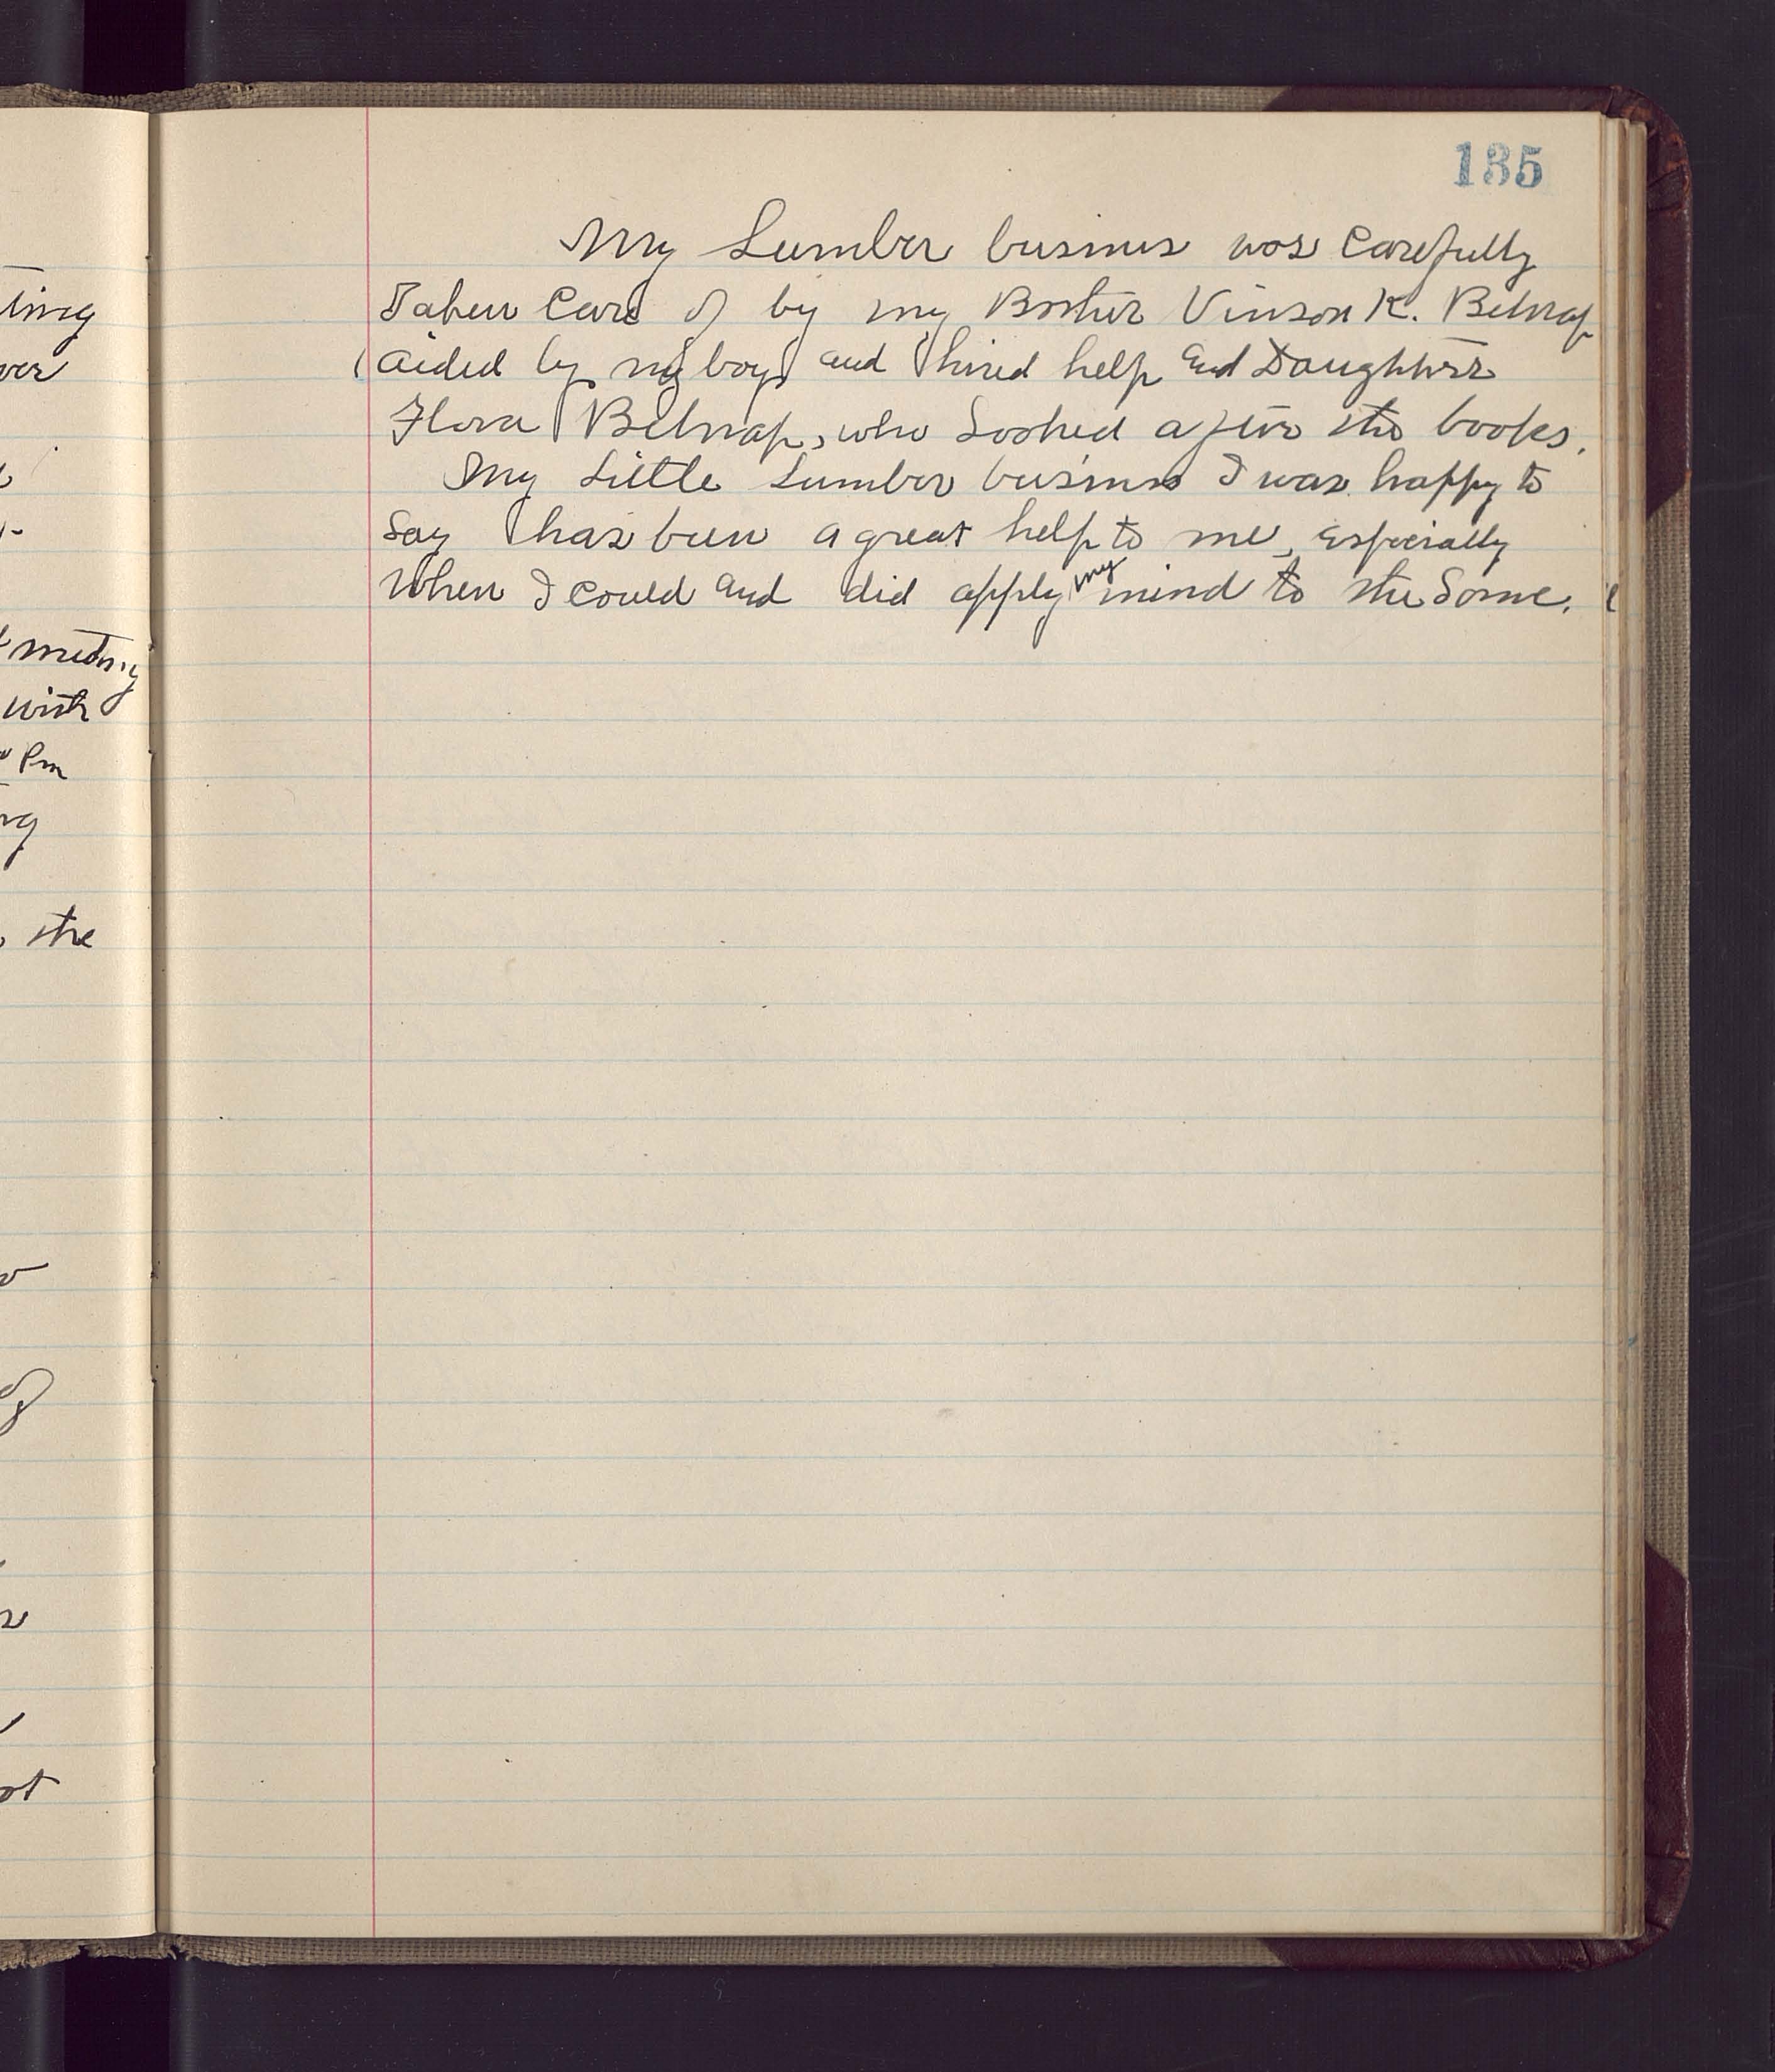 ting
ver
meting
with
Pm
ng
the
ot
135
My Lumber business was Carefully
Taken Care of by my Brother Vinson K. Belnap
aided by my boys and hired help and Daughters
Flora Belnap, who Looked after the books.
My Little Lumber business I was happy to
Say has been a great help to me, Especially
When I could and did apply my mind to the Same.